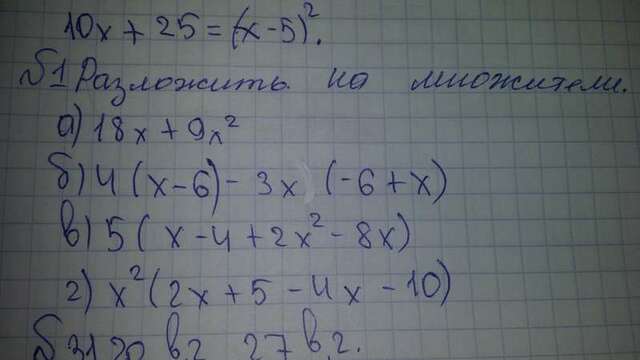 10x + 25 = (x - 5)².
№1 Разложить на множители.
а) 18x + 9x²
б) 4 (x - 6) - 3x (-6 + x)
в) 5 ( x - 4 + 2x² - 8x)
г) x² (2x + 5 - 4x - 10)
27 в, г.